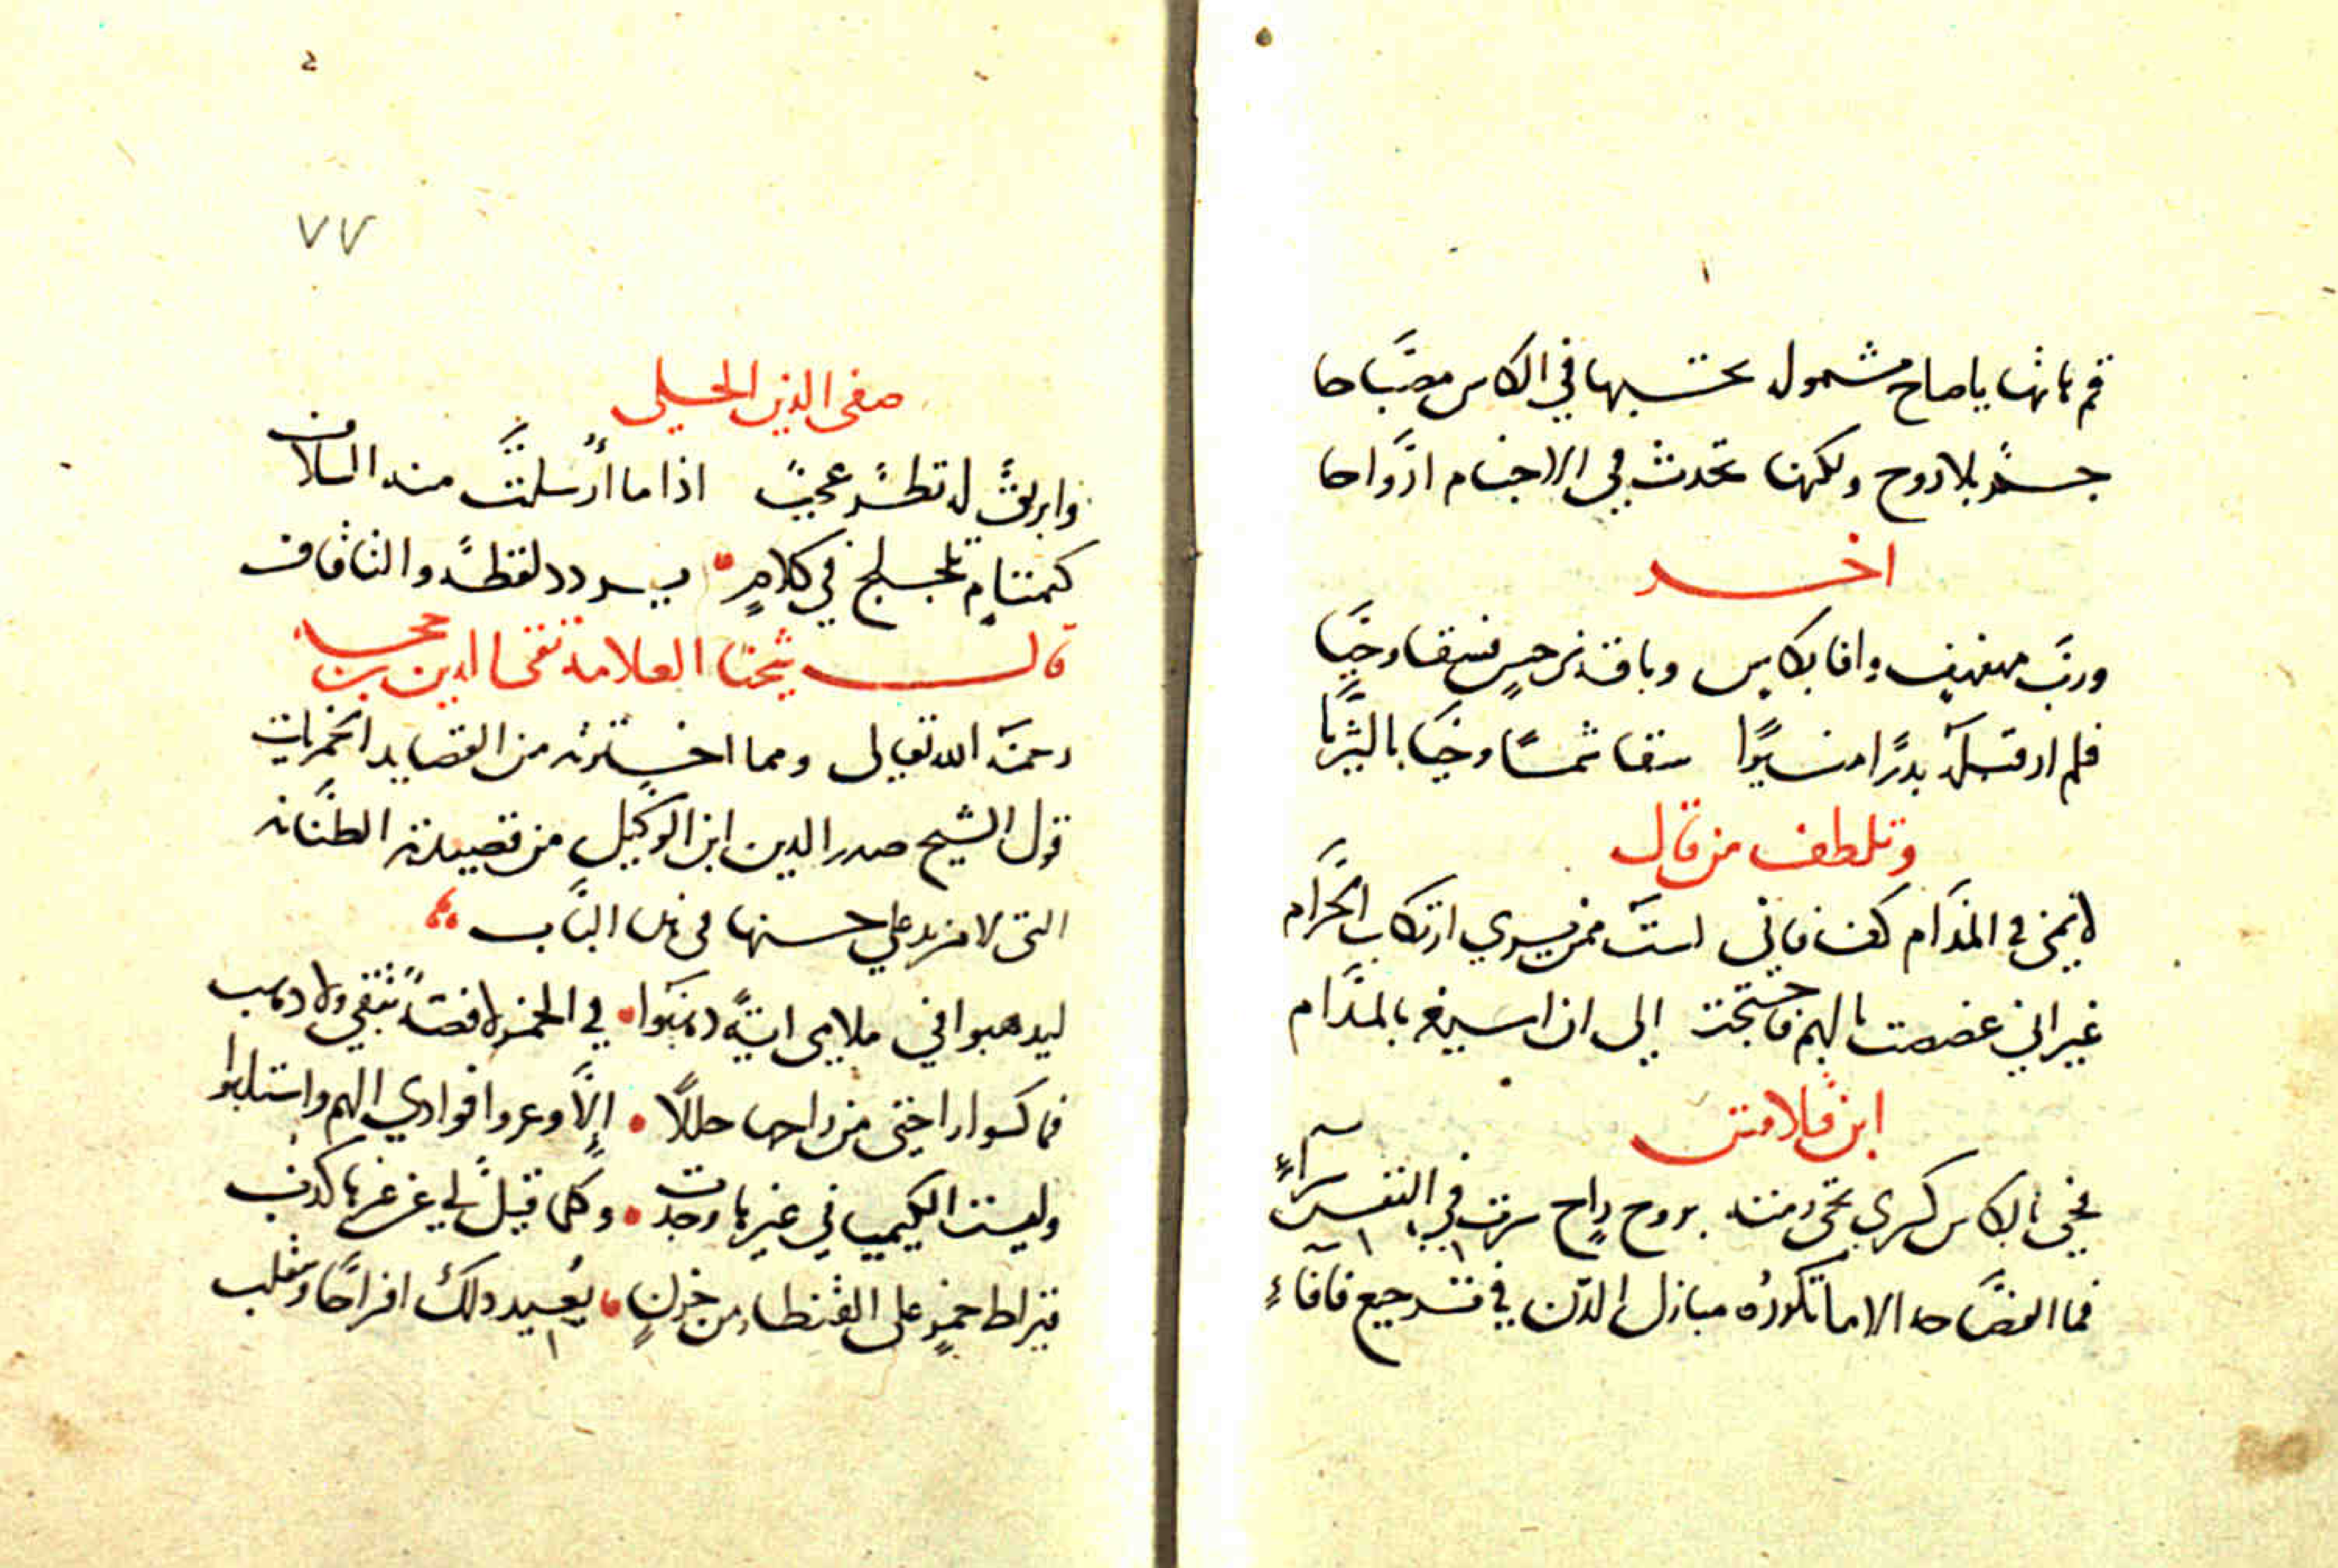 قم هاتها يا صاح مشموله تحسبها في الكاس مصباحا
جسم بلا روح ولكنها تحدث في الاجسام ارواحا
اخر
ورب مهفهف وافا بكاس وباقة نرجس فسقا وحيا
فلم ار قبله بدرا منيرا سقا شمسا وحيا بالثريا
وتلطف من قال
لا تمني في المدام كف فاني لست ممن يري ارتكاب الحرام
غير اني غصصت بالهم فاحتجت إلى ان اسيغه بالمدام
ابن قلاقس
تحيي بالكاس كسرى تحي رمته بروح راح سرت في النفس سرآء
فما الفصاحه الا ما تكرره مبازل الدن في ترجيع فافاء
٧٧
صفي الدين الحلي
وابريق له نطق عجيب اذا ما أرسلت منه السلاف
كتمتام تلجلج في كلام يردد لفظه والتا وفاف
قال شيخنا العلامة تقي الدين بن حجه
رحمه الله تعالى ومما اخترته من القصايد الخمريات
قول الشيخ صدر الدين ابن الوكيل من قصيدته الطنانه
التي لا مزيد علي حسنها في هذا الباب
ليذهبوا في ملامي اية ذهبوا في الخمر لا فضة تبقي ولا ذهب
فما كسوا راحتي من راحها حللا إلا وعروا فوادي الهم واستلبوا
وليست الكيميا في غيرها وجدت وكلما قيل في غيرها كذب
قيراط خمر على القنطار من حزن يعيد ذلك افراحا وينقلب